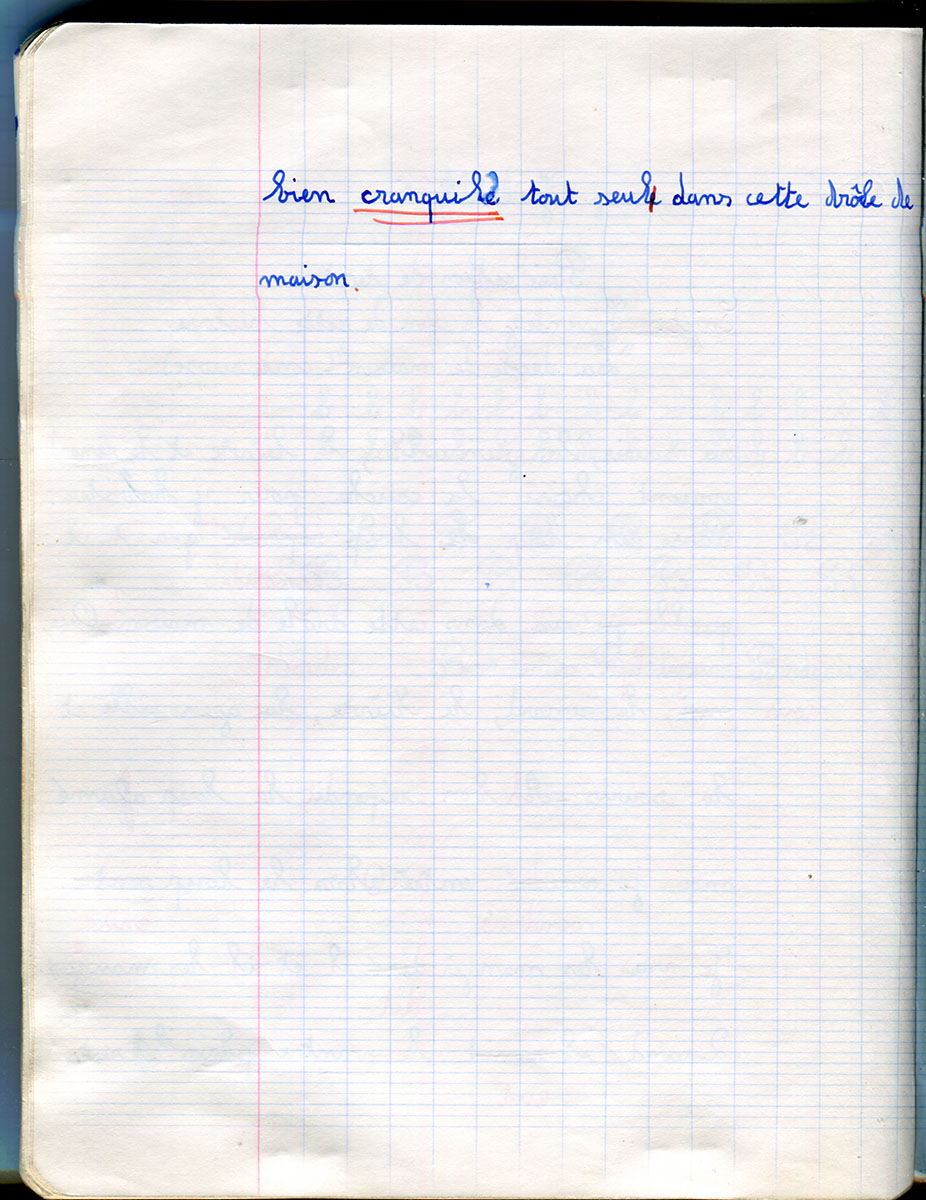 bien cranquile tout seul dans cette drôle de
maison.